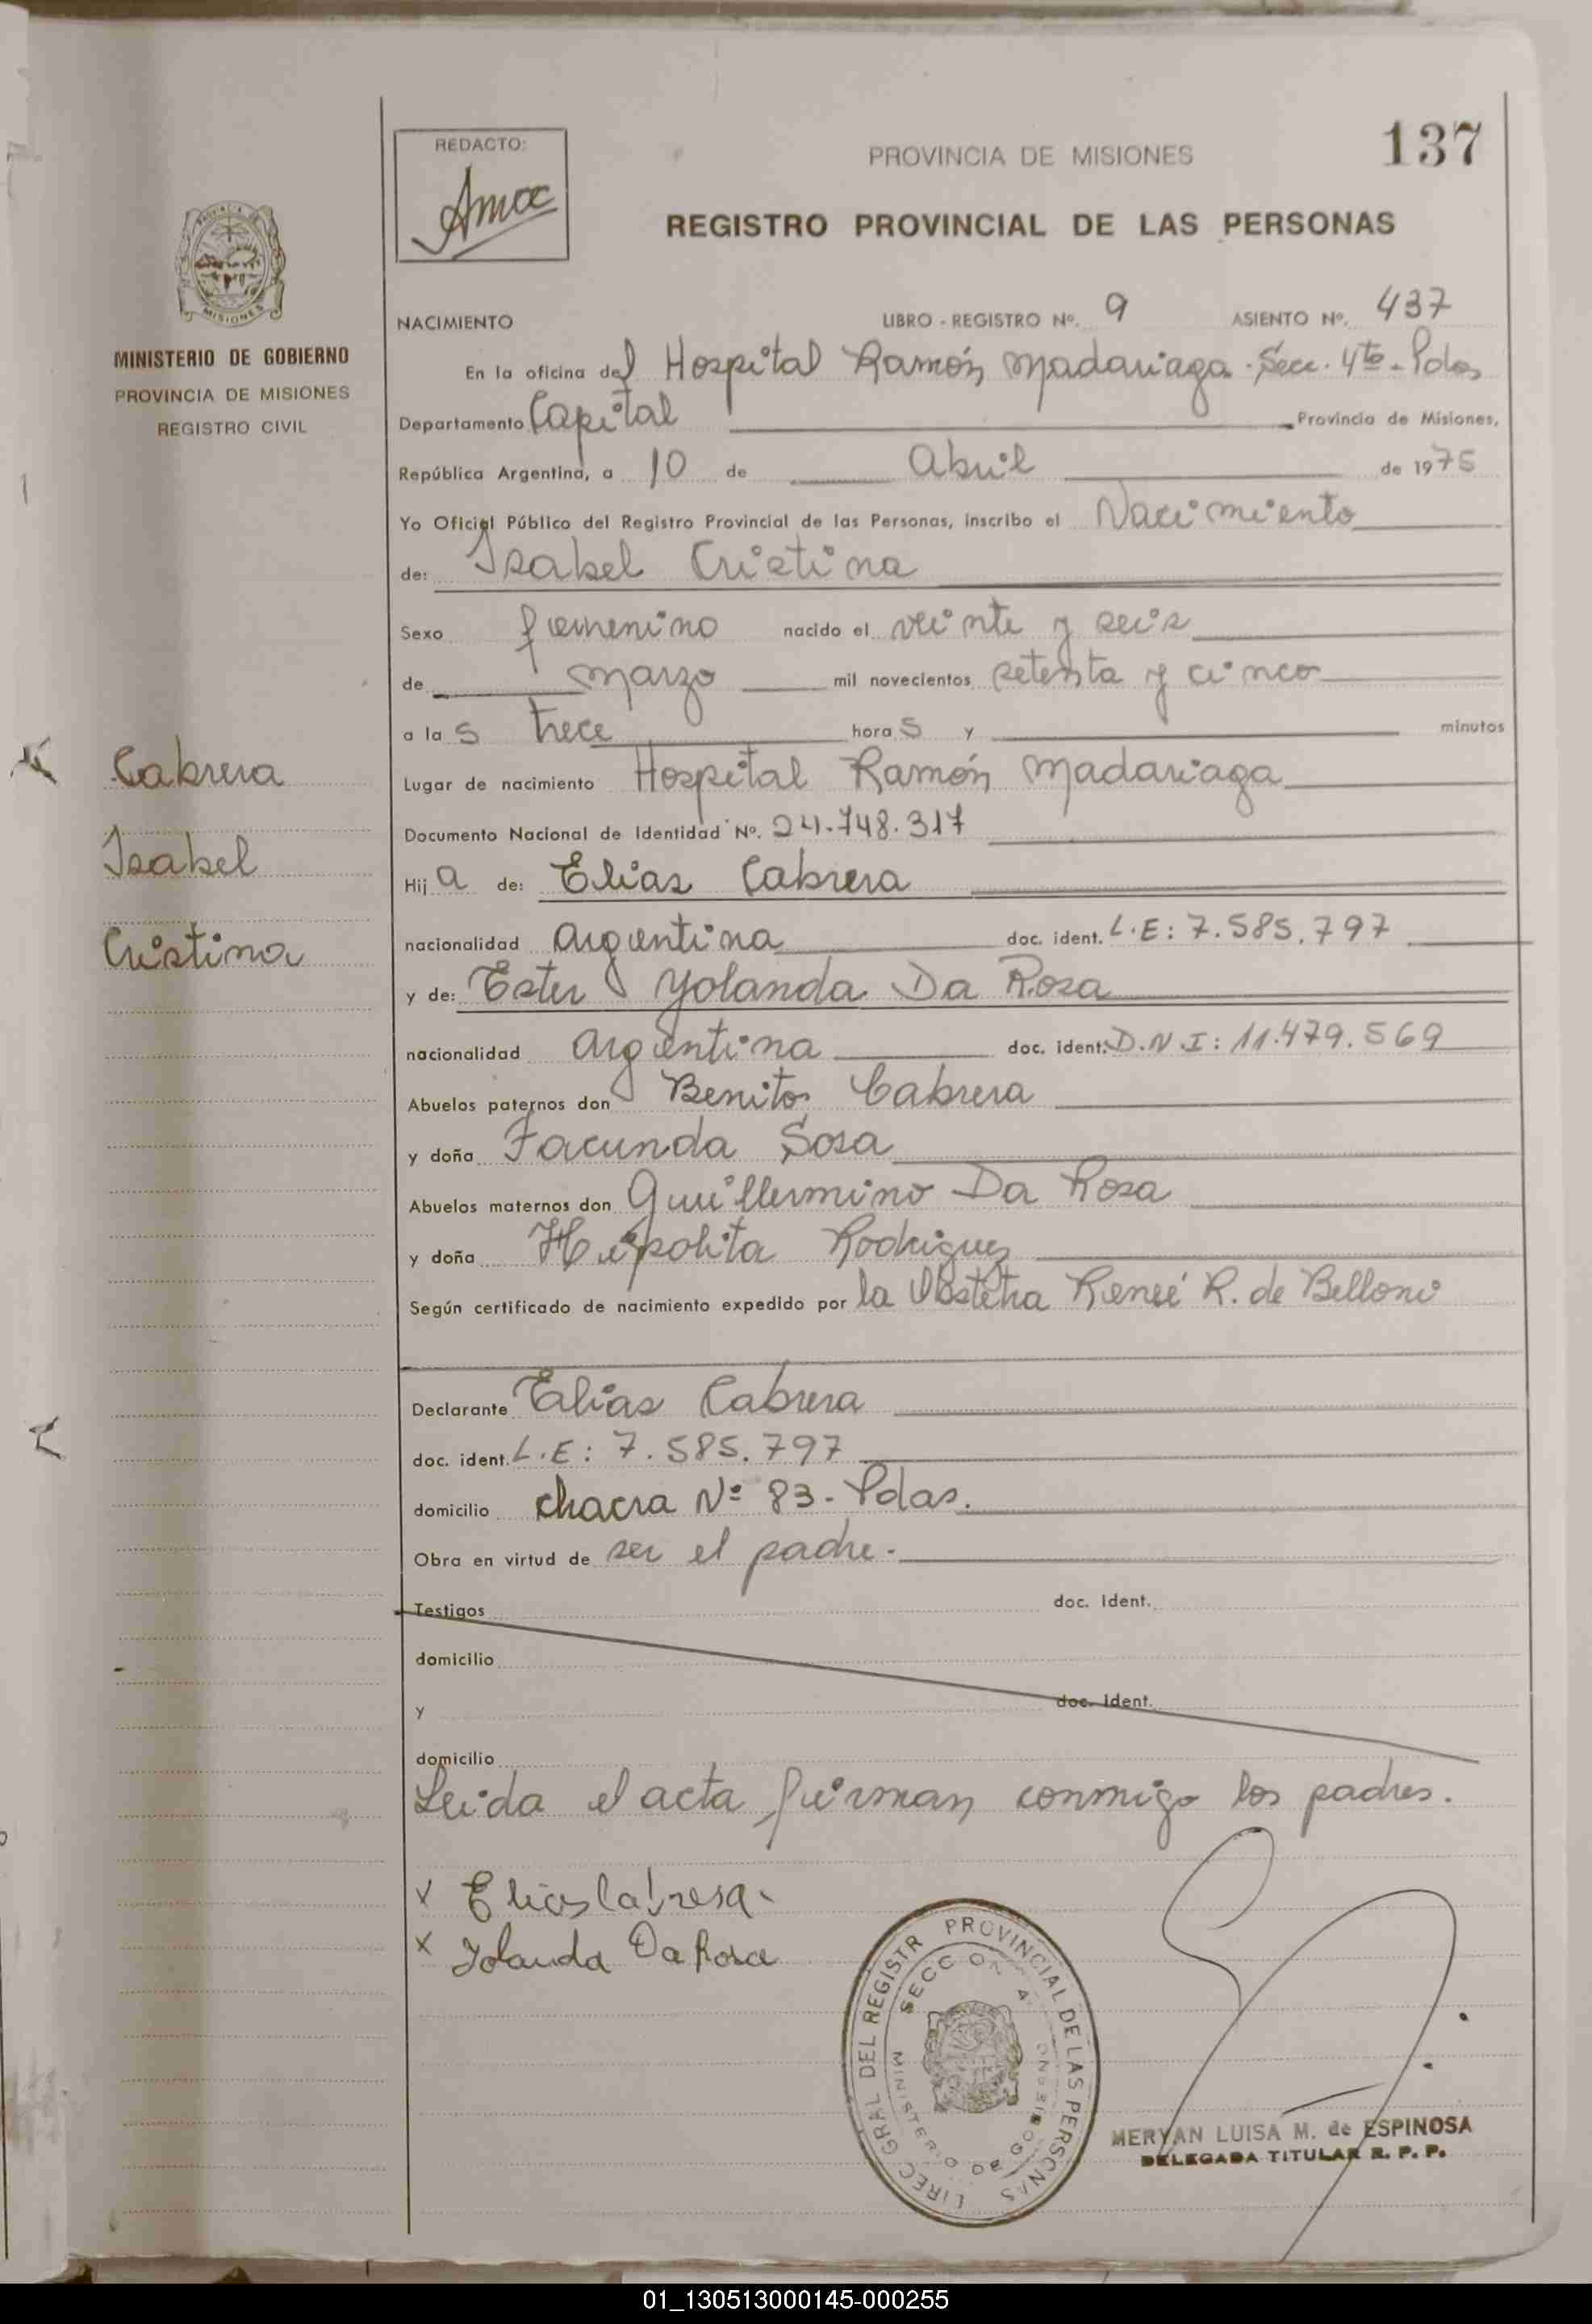 REDACTO:
PROVINCIA DE MISIONES
137
REGISTRO PROVINCIAL DE LAS PERSONAS
MINISTERIO DE GOBIERNO
PROVINCIA DE MISIONES
REGISTRO CIVIL
NACIMIENTO LIBRO - REGISTRO Nº. 9 ASIENTO Nº. 437
En la oficina del Hospital Ramón Madariaga - Secc. 4ta - Pdas
Departamento Capital Provincia de Misiones,
República Argentina, a 10 de Abril de 1975
Yo Oficial Público del Registro Provincial de las Personas, inscribo el Nacimiento
de: Isabel Cristina
Sexo femenino nacido el veinte y seis
de marzo mil novecientos setenta y cinco
a las trece horas y minutos
Cabrera
Isabel
Cristina
Lugar de nacimiento Hospital Ramón Madariaga
Documento Nacional de Identidad Nº. 24.748.317
Hija de: Elias Cabrera
nacionalidad argentina doc. ident. L.E: 7.585.797
y de: Ester Yolanda Da Rosa
nacionalidad argentina doc. ident. D.N.I: 11.479.569
Abuelos paternos don Benito Cabrera
y doña Facunda Sosa
Abuelos maternos don Guillermino Da Rosa
y doña Hipolita Rodriguez
Según certificado de nacimiento expedido por la Obstetra Reneé R. de Belloni
Declarante Elias Cabrera
doc. ident. L.E: 7.585.797
domicilio chacra Nº 83 - Pdas.
Obra en virtud de ser el padre.
Testigos doc. Ident.
domicilio
y doc. Ident.
domicilio
Leida el acta firman conmigo los padres.
x Elias Cabrera
x Yolanda Da Rosa
PROVINCIAL DE LAS PERSONAS
MERYAN LUISA M. de ESPINOSA
DELEGADA TITULAR R. P. P.
01_130513000145-000255